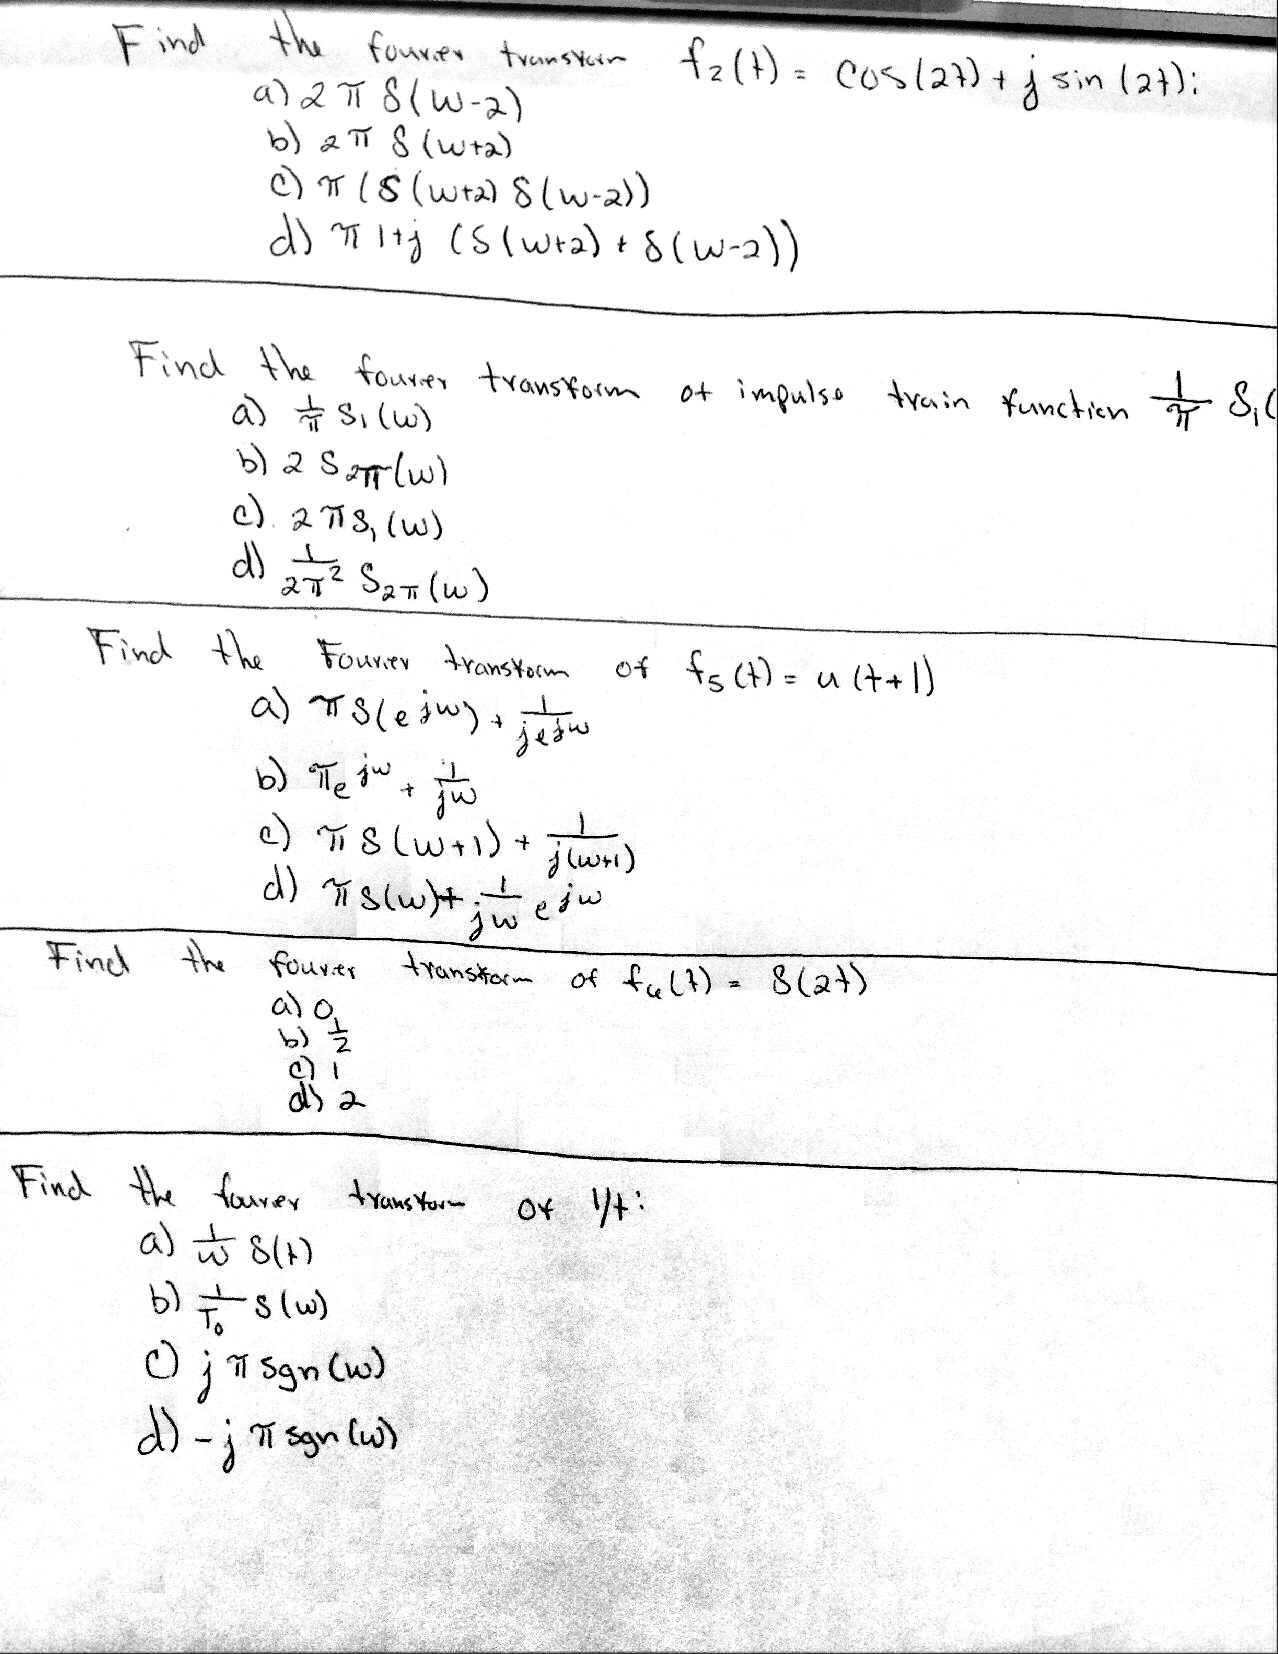 Find the fourier transform f₂(t) = cos(2t) + j sin(2t):
a) 2π δ(w-2)
b) 2π δ(w+2)
c) π(δ(w+2) δ(w-2))
d) π 1+j (δ(w+2) + δ(w-2))
Find the fourier transform of impulse train function 1/π δ₁(
a) 1/π δ₁(w)
b) 2 δ₂π(w)
c). 2πδ₁(w)
d) 1/2π² δ₂π(w)
Find the Fourier transform of f₅(t) = u(t+1)
a) πδ(e^jw) + 1/je^jw
b) πe^jw + 1/jw
c) πδ(w+1) + 1/j(w+1)
d) πδ(w)+ 1/jw e^jw
Find the fourier transform of f₆(t) = δ(2t)
a) 0
b) 1/2
c) 1
d) 2
Find the fourier transform of 1/t:
a) 1/w δ(t)
b) 1/T₀ δ(w)
c) jπ sgn(w)
d) -jπ sgn(w)